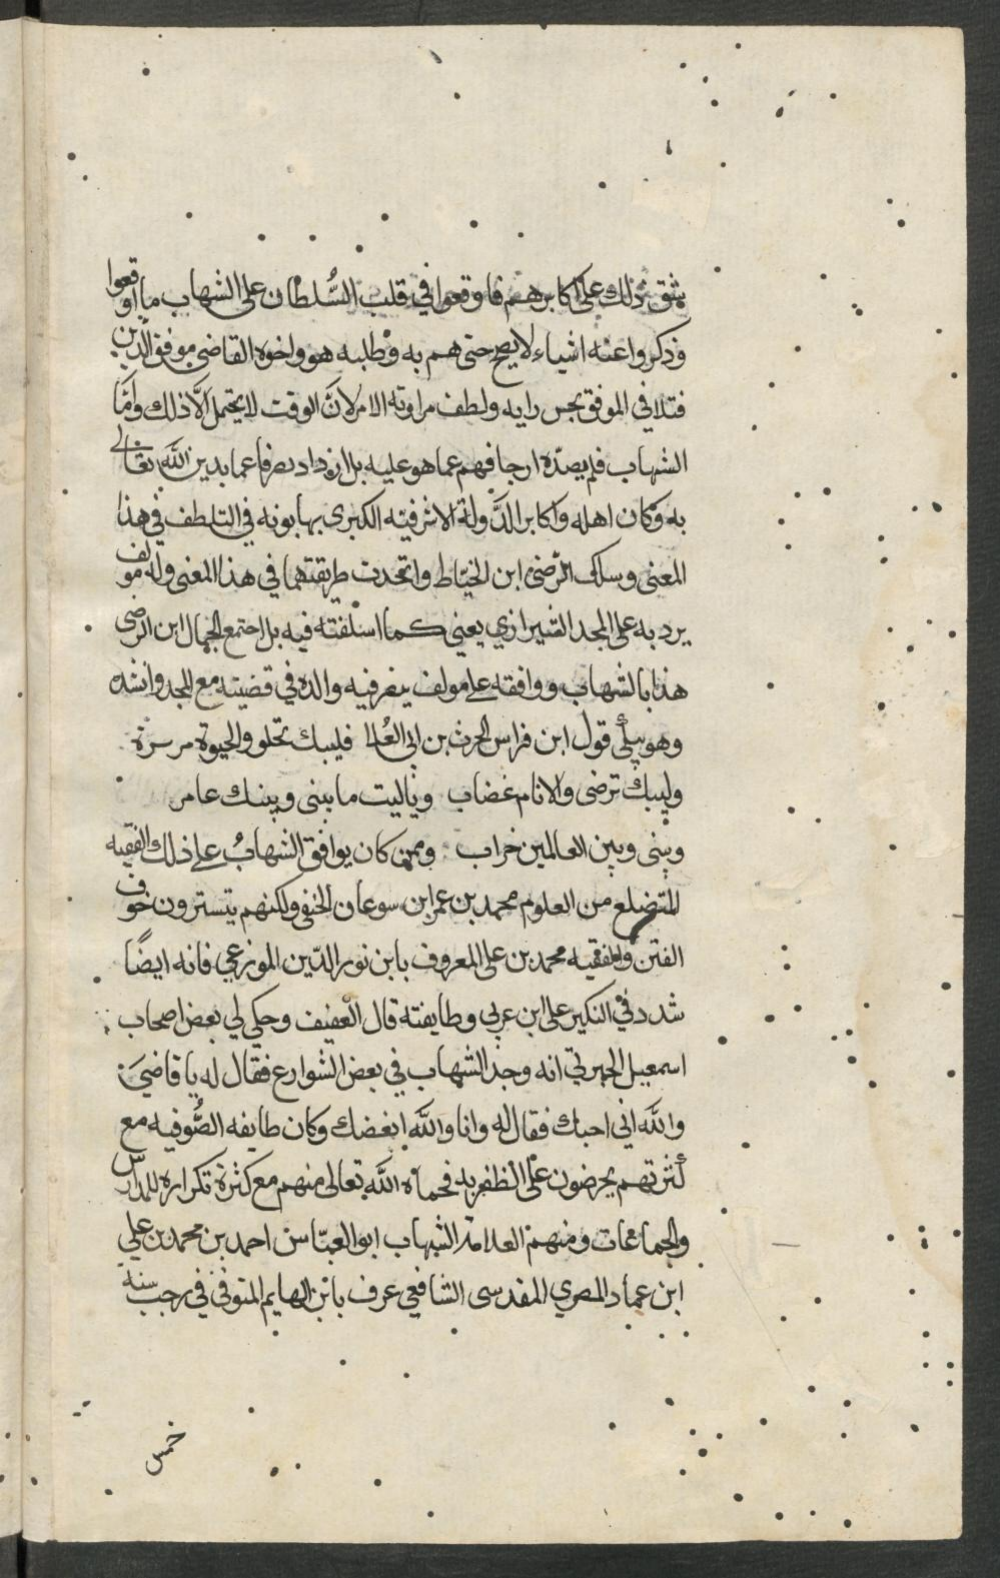 يشق ذلك على اكابرهم فاوقعوا في قلب السُّلطان على الشهاب ما اوقعوا
وذكروا عنه اشياء لا يصح حتى هم به وطلبه هو واخوه القاضي موفق الدين
فتلافى الموفق بحسن رايه ولطف مراوته الامر لانَّ الوقت لا يحتمل الَّا ذلك وامَّا
الشهاب فلم يصدّه ارجافهم عما هو عليه بل ازداد بصرفا عما يدين الله تعالى
به وكان اهله واكابر الدَّولة الاشرفيه الكبرى يهابونه في التلطف في هذا
المعنى وسلك الرضى ابن الخيّاط واتحدت طريقتهما في هذا المعنى وله مولف
يرد به على المجد الشيرازي يعني كما اسلفته فيه بل اجتمع الجمال ابن الرضى
هذا بالشهاب ووافقه على مولف ينفر فيه والده في قضيته مع المجد وانشده
وهو يبكي قول ابن فراس الحرث بن ابي العُلا فليبك تحلو والحيوة مرسرة
وليبك ترضى والانام غضاب وياليت ما بيني وبينك عامر
وبيني وبين العالمين خراب وممن كان يوافق الشهابُ على ذلك والفقيه
المتضلع من العلوم محمد بن عمر ابن سوعان الحنفي ولكنهم يتسترون خوف
الفتن والفقيه محمد بن على المعروف بابن نور الدّين الموزعي فانه ايضًا
شدد في النكير على ابن عربي وطايفته قال العفيف وحكي لي بعض اصحاب
اسمعيل الجبرتي انه وجد الشهاب في بعض الشوارع فقال له يا قاضي
والله اني احبك فقال له وانا والله ابغضك وكان طايفه الصُّوفيه مع
كثرتهم يحرضون على الظفر به فحماه الله تعالى منهم مع كثرة تكراره للمدارس
والجماعات ومنهم العلامة الشهاب ابو العبّاس احمد بن محمد بن علي
ابن عماد المصري المقدسي الشافعي عرف بابن الهايم المتوفى في رجب سنة
خمس